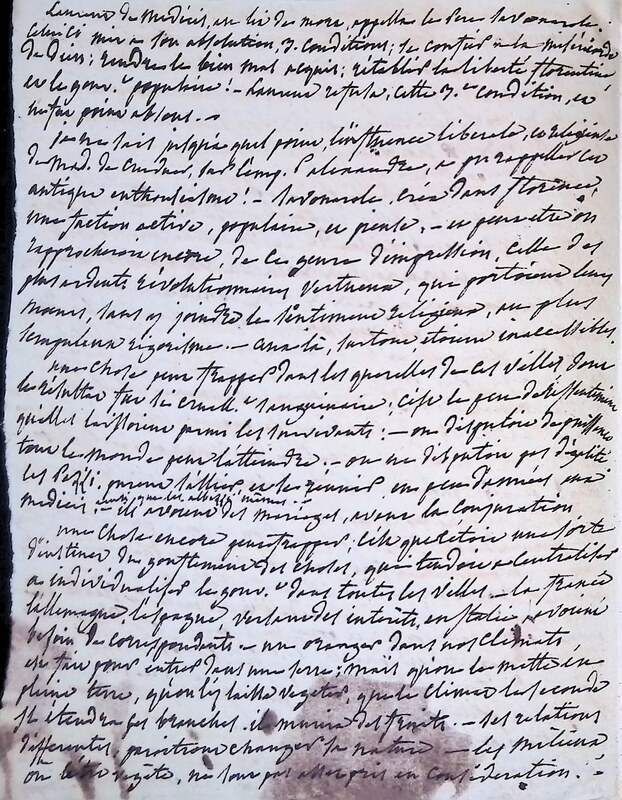 Laurent de Medicis, au lit de mort, appella le Pere Savonarole.
Celui-ci mit a son absolution, 3. conditions; se confier a la miséricorde
de Dieu; rendre le bien mal acquis; rétablir la liberté florentine
et le gouv.t populaire! - Laurent refusa, cette 3.e condition, et
ne fut point absous. -
Je ne sais jusqu'a quel point l'influence liberale, et religieuse
de Mad. de Crudner, sur l'emp. r alexandre, a pu rappeller cet
antique enthousiasme! - Savonarole, créa dans florence,
une faction active, populaire, et pieuse, - et peut etre on
rapprocheroit encore, de ce genre d'impression, celle des
plus ardents révolutionnaires vertueux, qui portoient leurs
moeurs, sans y joindre le sentiment religieux, au plus
scrupuleux rigorisme. - Ceux là, surtout, étoient inaccessibles.
une chose peut frapper dans les querelles de ces villes, dont
le résultat fut si cruel.t sanguinaire; c'est le peu de ressentiment
qu'elles laissoient parmi les survivants! - on disputoit de puissance
tout le monde peut l'atteindre. - on ne disputoit pas d'égalité
les Pazzi, purent s'allier, et se réunir, en peu d'années, aux
medicis! - ainsi que les albizzi mêmes. - ils avoient des mariages, avant la conjuration
une chose encore peut frapper; c'est que c'étoit une sorte
d'instinct du gouvernement des choses, qui tendoit a centraliser
a individualiser le gouv.t dans toutes les villes - la france
l'allemagne, l'espagne, vu leurs interets, en Italie, avoient
besoin de correspondants - un oranger dans nos climats
est fait pour entrer dans une serre; mais qu'on le mette en
pleine terre, qu'on l'y laisse vegeter, que le climat le seconde
il étendra ses branches. il murira des fruits. - ses relations
differentes, paroitront changer sa nature - les milieux
où l'être végète, ne sont pas assez pris en consideration! -